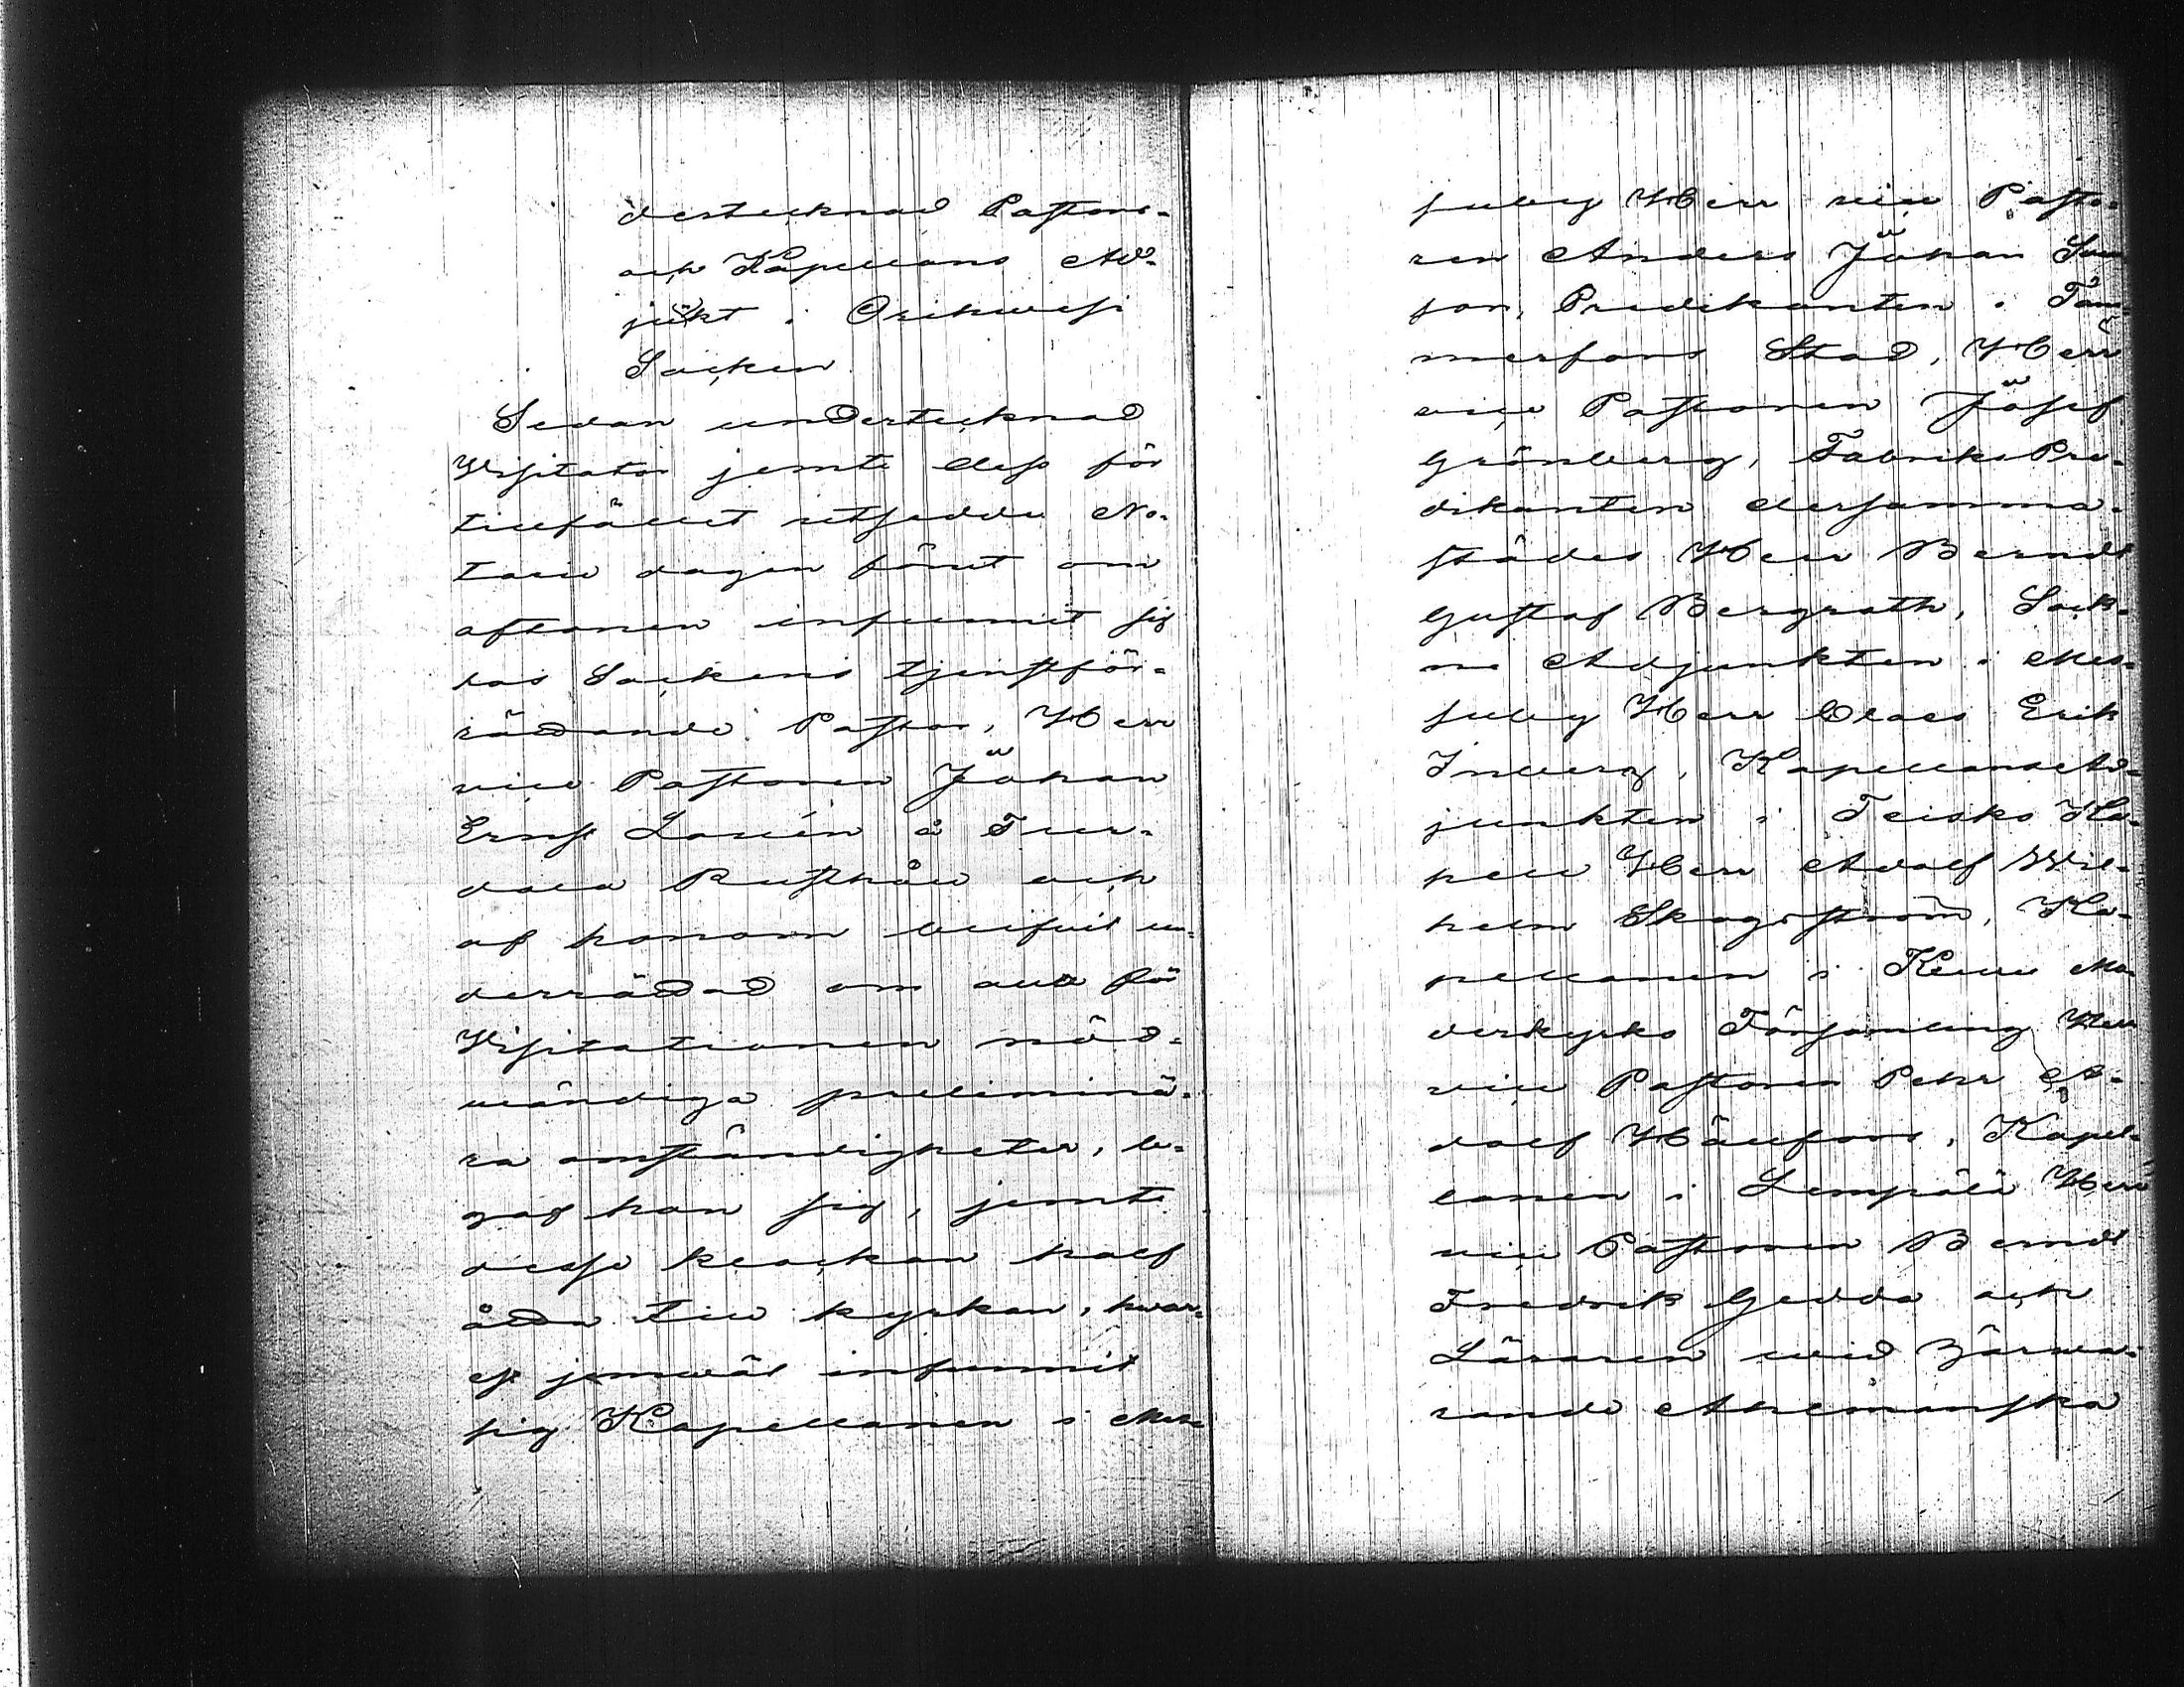 dertecknad Pastors-
och Kapellans Ad-
jukt i Orihwesi
Socken
Sedan undertecknad
Visitator jemte dess för
tillfället utsedde No-
tarie dagen förut om
aftonen infunnit sig
hos Sockens tjenstför-
rättande Pastor, Herr
vice Pastoren Johan
Ernst Lorién å
dala Rusthåll och
af honom blifvit un-
derrättad om alla för
Visitationen nöd-
vändiga preliminä-
ra omständigheter, be-
gaf han sig, jemte
desse klockan half
åtta till kyrkan, hvar-
est jemväl infunnit
sig Kapellanen i Mes-
suby Herr vice Pasto-
ren Anders Johan
son, Predikanten i Tam-
merfors Stad, Herr
vice Pastoren Josef
Grönberg, Fabriks Pre-
dikanten dersamma-
städes Herr Berndt
Gustaf Bergroth, Sock-
ne Adjunkten i Mes-
suby Herr Claes Erik
Inberg, Kapellans Ad-
junkten i Teisko Ka-
pell Herr Adolf Wil-
helm Skogström, Ka-
pellanen i Kuru Mo-
derkyrko Församling Herr
vice Pastoren Pehr A-
dolf Hällfors, Kapel-
lanen i Lempälä Herr
vice Pastoren Berndt
Fredrik Gedda och
Läraren wid Bärwa-
rande Ahlmanska